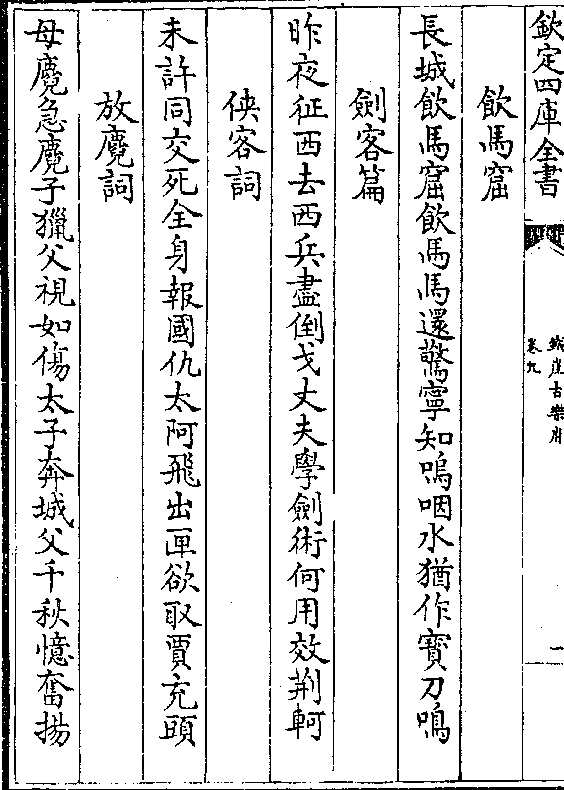 欽定四庫全書
鐵崖古樂府
卷九
一
飲馬窟
長城飲馬窟飲馬馬還驚寧知嗚咽水猶作寶刀鳴
劍客篇
昨夜征西去西兵盡倒戈丈夫學劍術何用效荆軻
俠客詞
未許同交死全身報國仇太阿飛出匣欲取賈充頭
放麑詞
母麑急麑子獵父視如傷太子奔城父千秋憶奮揚